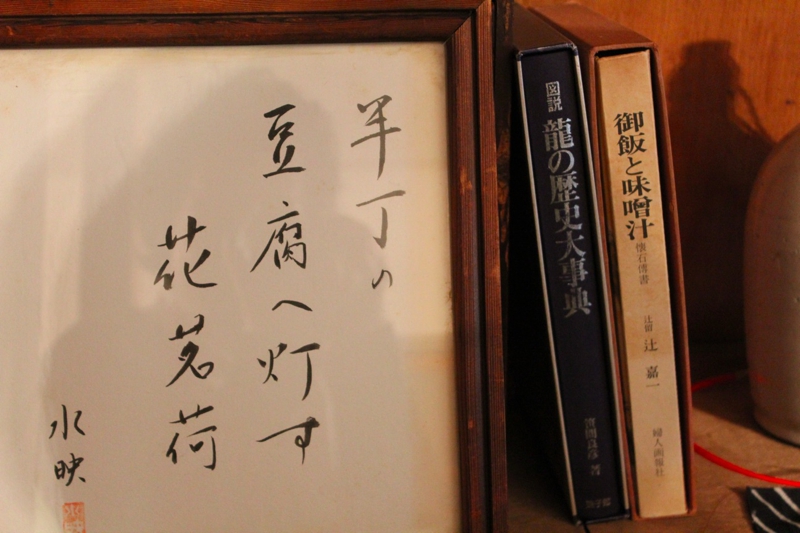 半丁の
豆腐へ灯す
花茗荷
水映
図説
龍の歴史大事典
笹間良彦 著
御飯と味噌汁
懐石傳書
辻留
辻 嘉一
婦人画報社